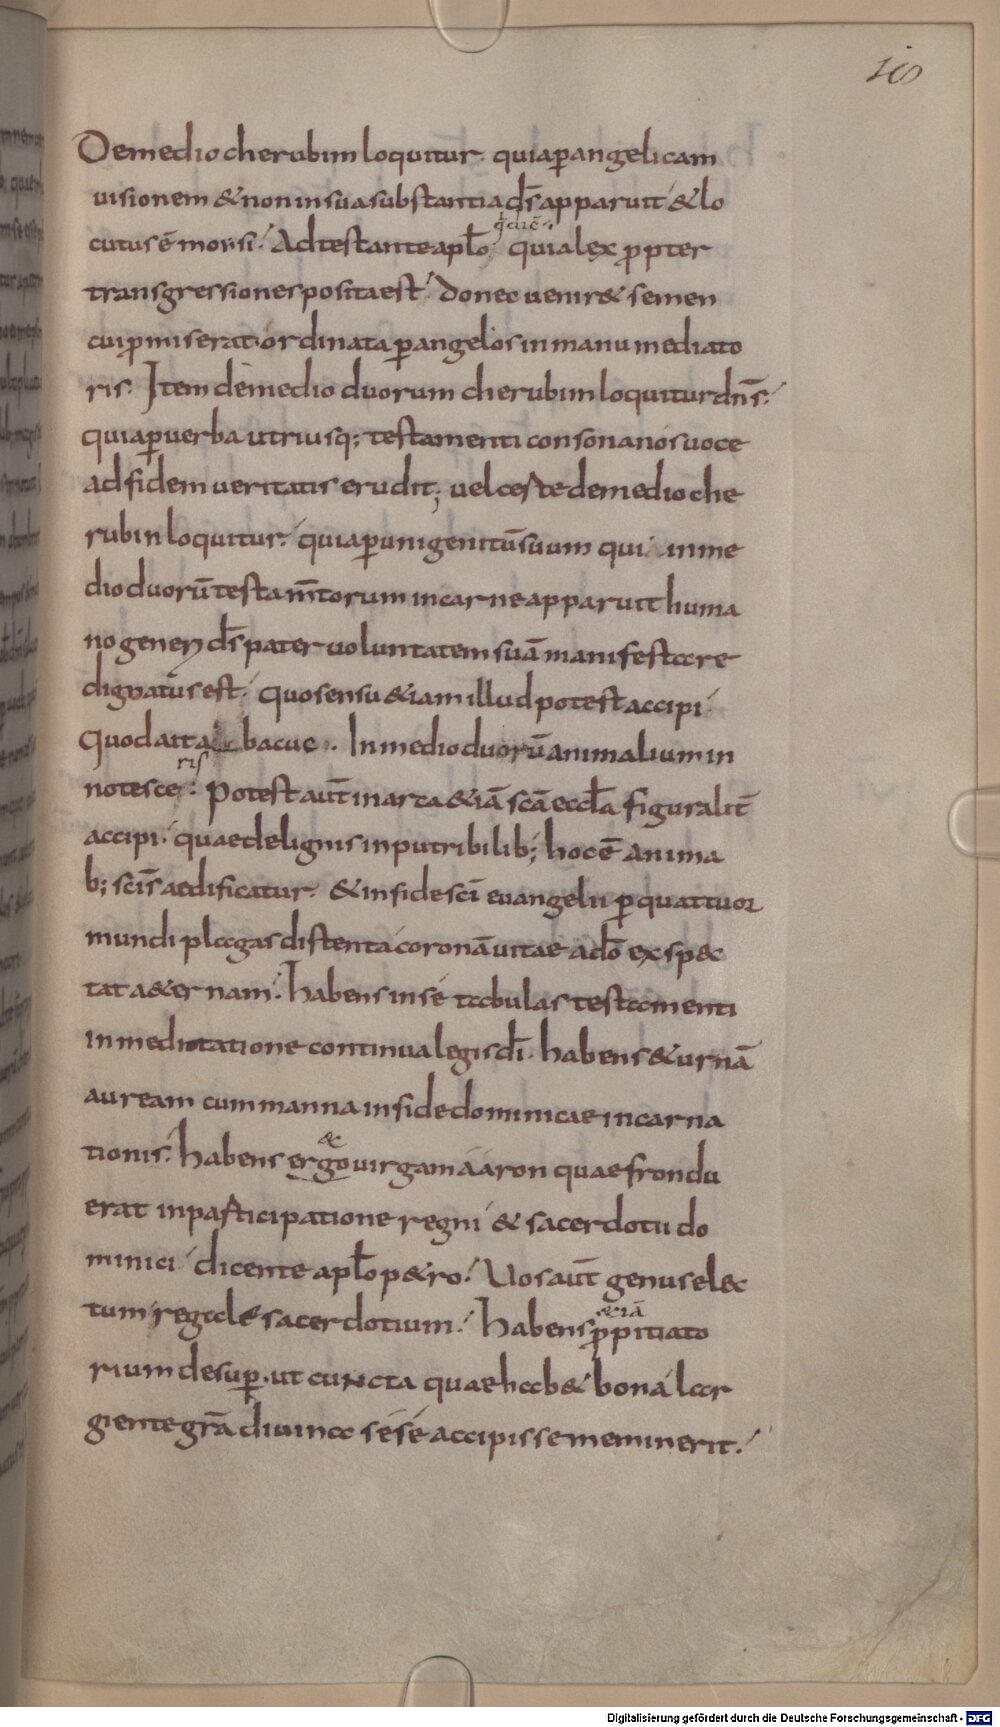 10
De medio cherubim loquitur. quia p̄ angelicam
uisionem & non in sua substantia d̄s apparuit & lo
cutus ē moysi. Adtestante apl̄o, quia lex propter
transgressiones posita est. donec uenir& semen
cui p̄miserat ordinata p̄ angelos in manu mediato
ris. Item de medio duorum cherubim loquitur dn̄s.
quia p̄ uerba utriusq; testamenti consona nos uoce
ad fidem ueritatis erudit; uel certe de medio che
rubin loquitur. quia p̄ unigenitū suum qui in me
dio duorū testam̄torum in carne apparuit huma
no generi d̄s pater uoluntatem suā manifestare
dignatus est. Quo sensu &iam illud potest accipi
Quod ait abacuc.. In medio duorū animalium in
notesceris. Potest aut̄ in arca &iā sc̄a eccl̄a figuralit̄
accipi. quae de lignis inputribilib; hoc ē anima
b; sc̄is aedificatur. & in fide sc̄i euangelii p̄ quattuor
mundi plagas distenta coronā uitae a dō exspec
tat a&ernam. habens in se tabulas testamenti
in meditatione continua legis dī. habens & urnā
auream cum manna in fide dominicae incarna
tionis. habens ergo & uirgam aaron quae frondu
erat in participatione regni & sacerdotii do
minici dicente apl̄o p&ro. Uos aut̄ genus elec
tum regale sacerdotium. Habens &iā p̄pitiato
rium desup̄. ut cuncta quae hab& bona lar
giente gr̄a diuina sese accipisse meminerit.
Digitalisierung gefördert durch die Deutsche Forschungsgemeinschaft - DFG